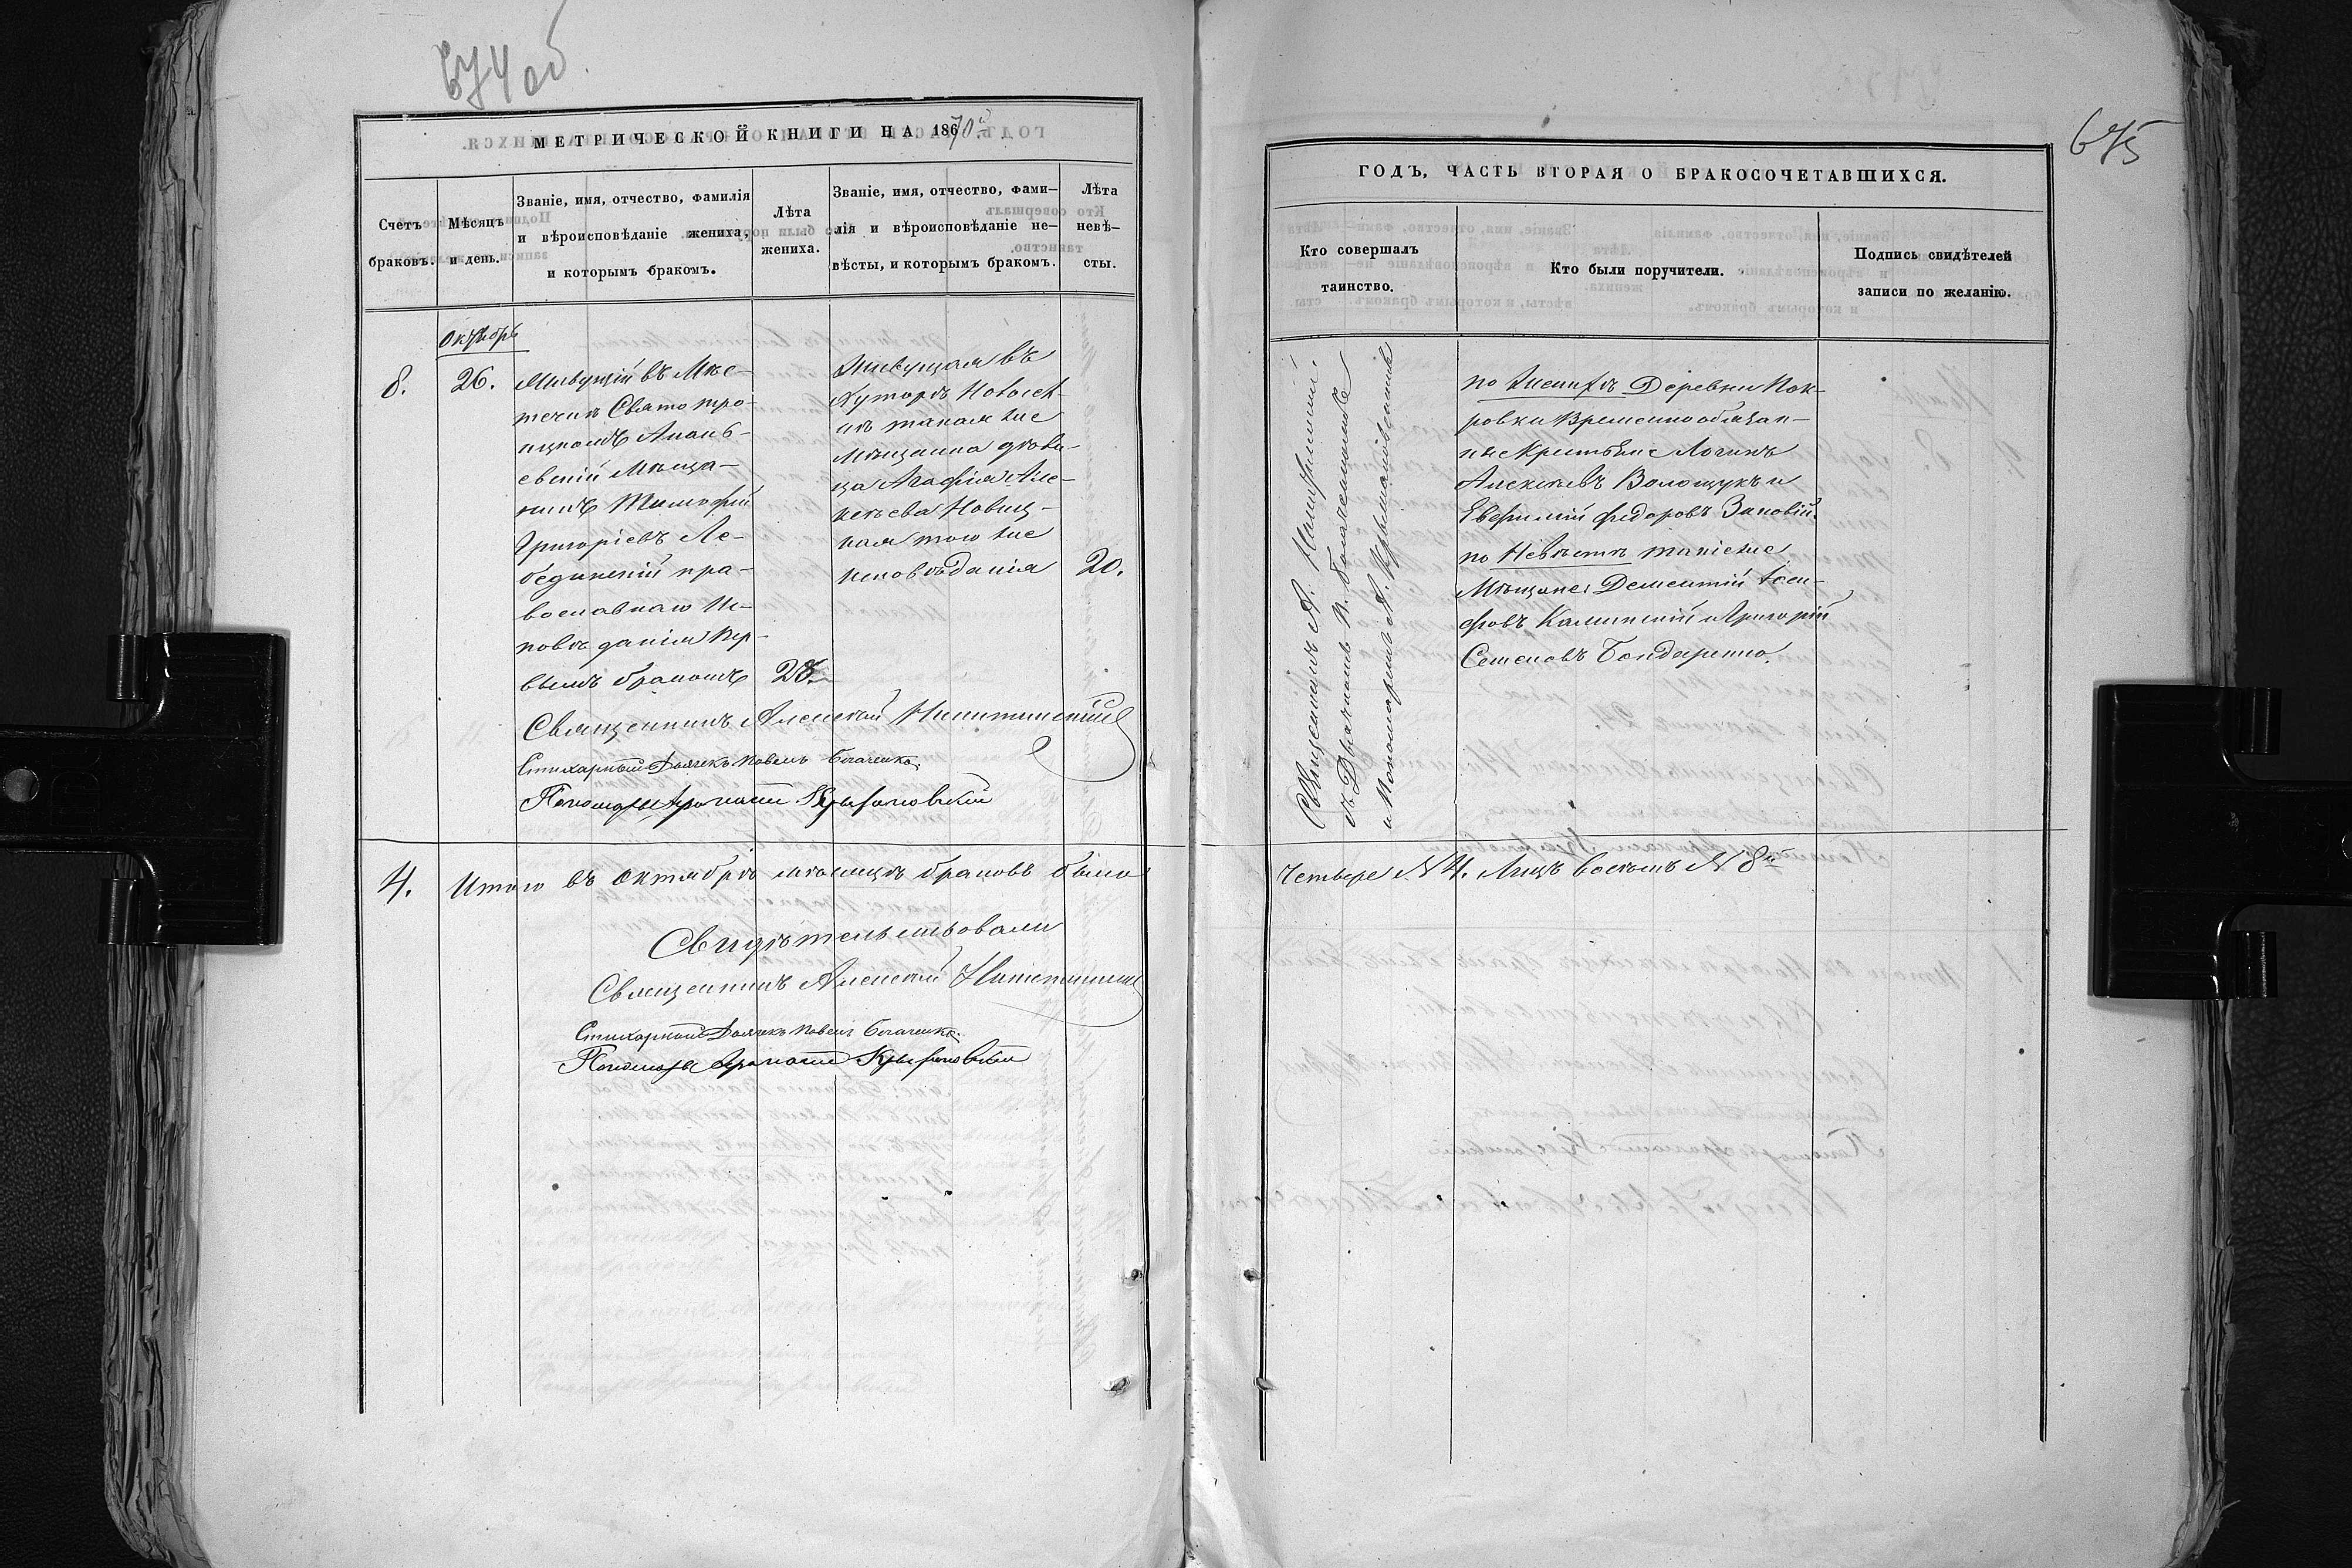 674 об.
МЕТРИЧЕСКОЙ КНИГИ НА 1870й
Счетъ браковъ.
Мѣсяцъ и день.
Званіе, имя, отчество, фамилія
и вѣроисповѣданіе жениха,
и которымъ бракомъ.
Лѣта
жениха.
Званіе, имя, отчество, фами-
лія и вѣроисповѣданіе не-
вѣсты, и которымъ бракомъ.
Лѣта
невѣ-
сты.
Октябрь
8.
26.
Живущій въ Мѣс-
течкѣ Свято тро-
ицкомъ Анань-
евскій Мѣща-
нинъ Тимофей
Григоріевъ Ле-
бединскій пра-
вославнаго Ис-
повѣданія пер-
вымъ бракомъ
28.
Живущая въ
Хуторѣ Новосел-
кѣ такая же
Мѣщанка дѣви-
ца Агафія Але-
ксѣева Новиц-
кая того же
исповѣданія
20.
Священникъ Алексѣй Никитинскій
Стихарный Дьячекъ Павелъ Богаченко.
Пономарь
4.
Итого въ Октябрѣ мѣсяцѣ браковъ было
Свидѣтельствовали
Священникъ Алексѣй Никитинскій
Стихарный Дьячекъ Павелъ Богаченко.
Пономарь
675
ГОДЪ, ЧАСТЬ ВТОРАЯ О БРАКОСОЧЕТАВШИХСЯ.
Кто совершалъ
таинство.
Кто были поручители.
Подпись свидѣтелей
записи по желанію.
Священникъ А. Никитинскій
съ Дьячкомъ П. Богаченкомъ
и Пономаремъ А.
по Женихѣ Деревни Пок-
ровки Временнообязан-
ные Крестьяне Логинъ
Алексѣевъ Волощукъ и
Евфимій Федоровъ
по Невѣстѣ такіе же
Мѣщане: Дементій Іоси-
фовъ Калинскій и Григорій
Семеновъ Бондаренко.
Четыре № 4. Лицъ восемь № 8й